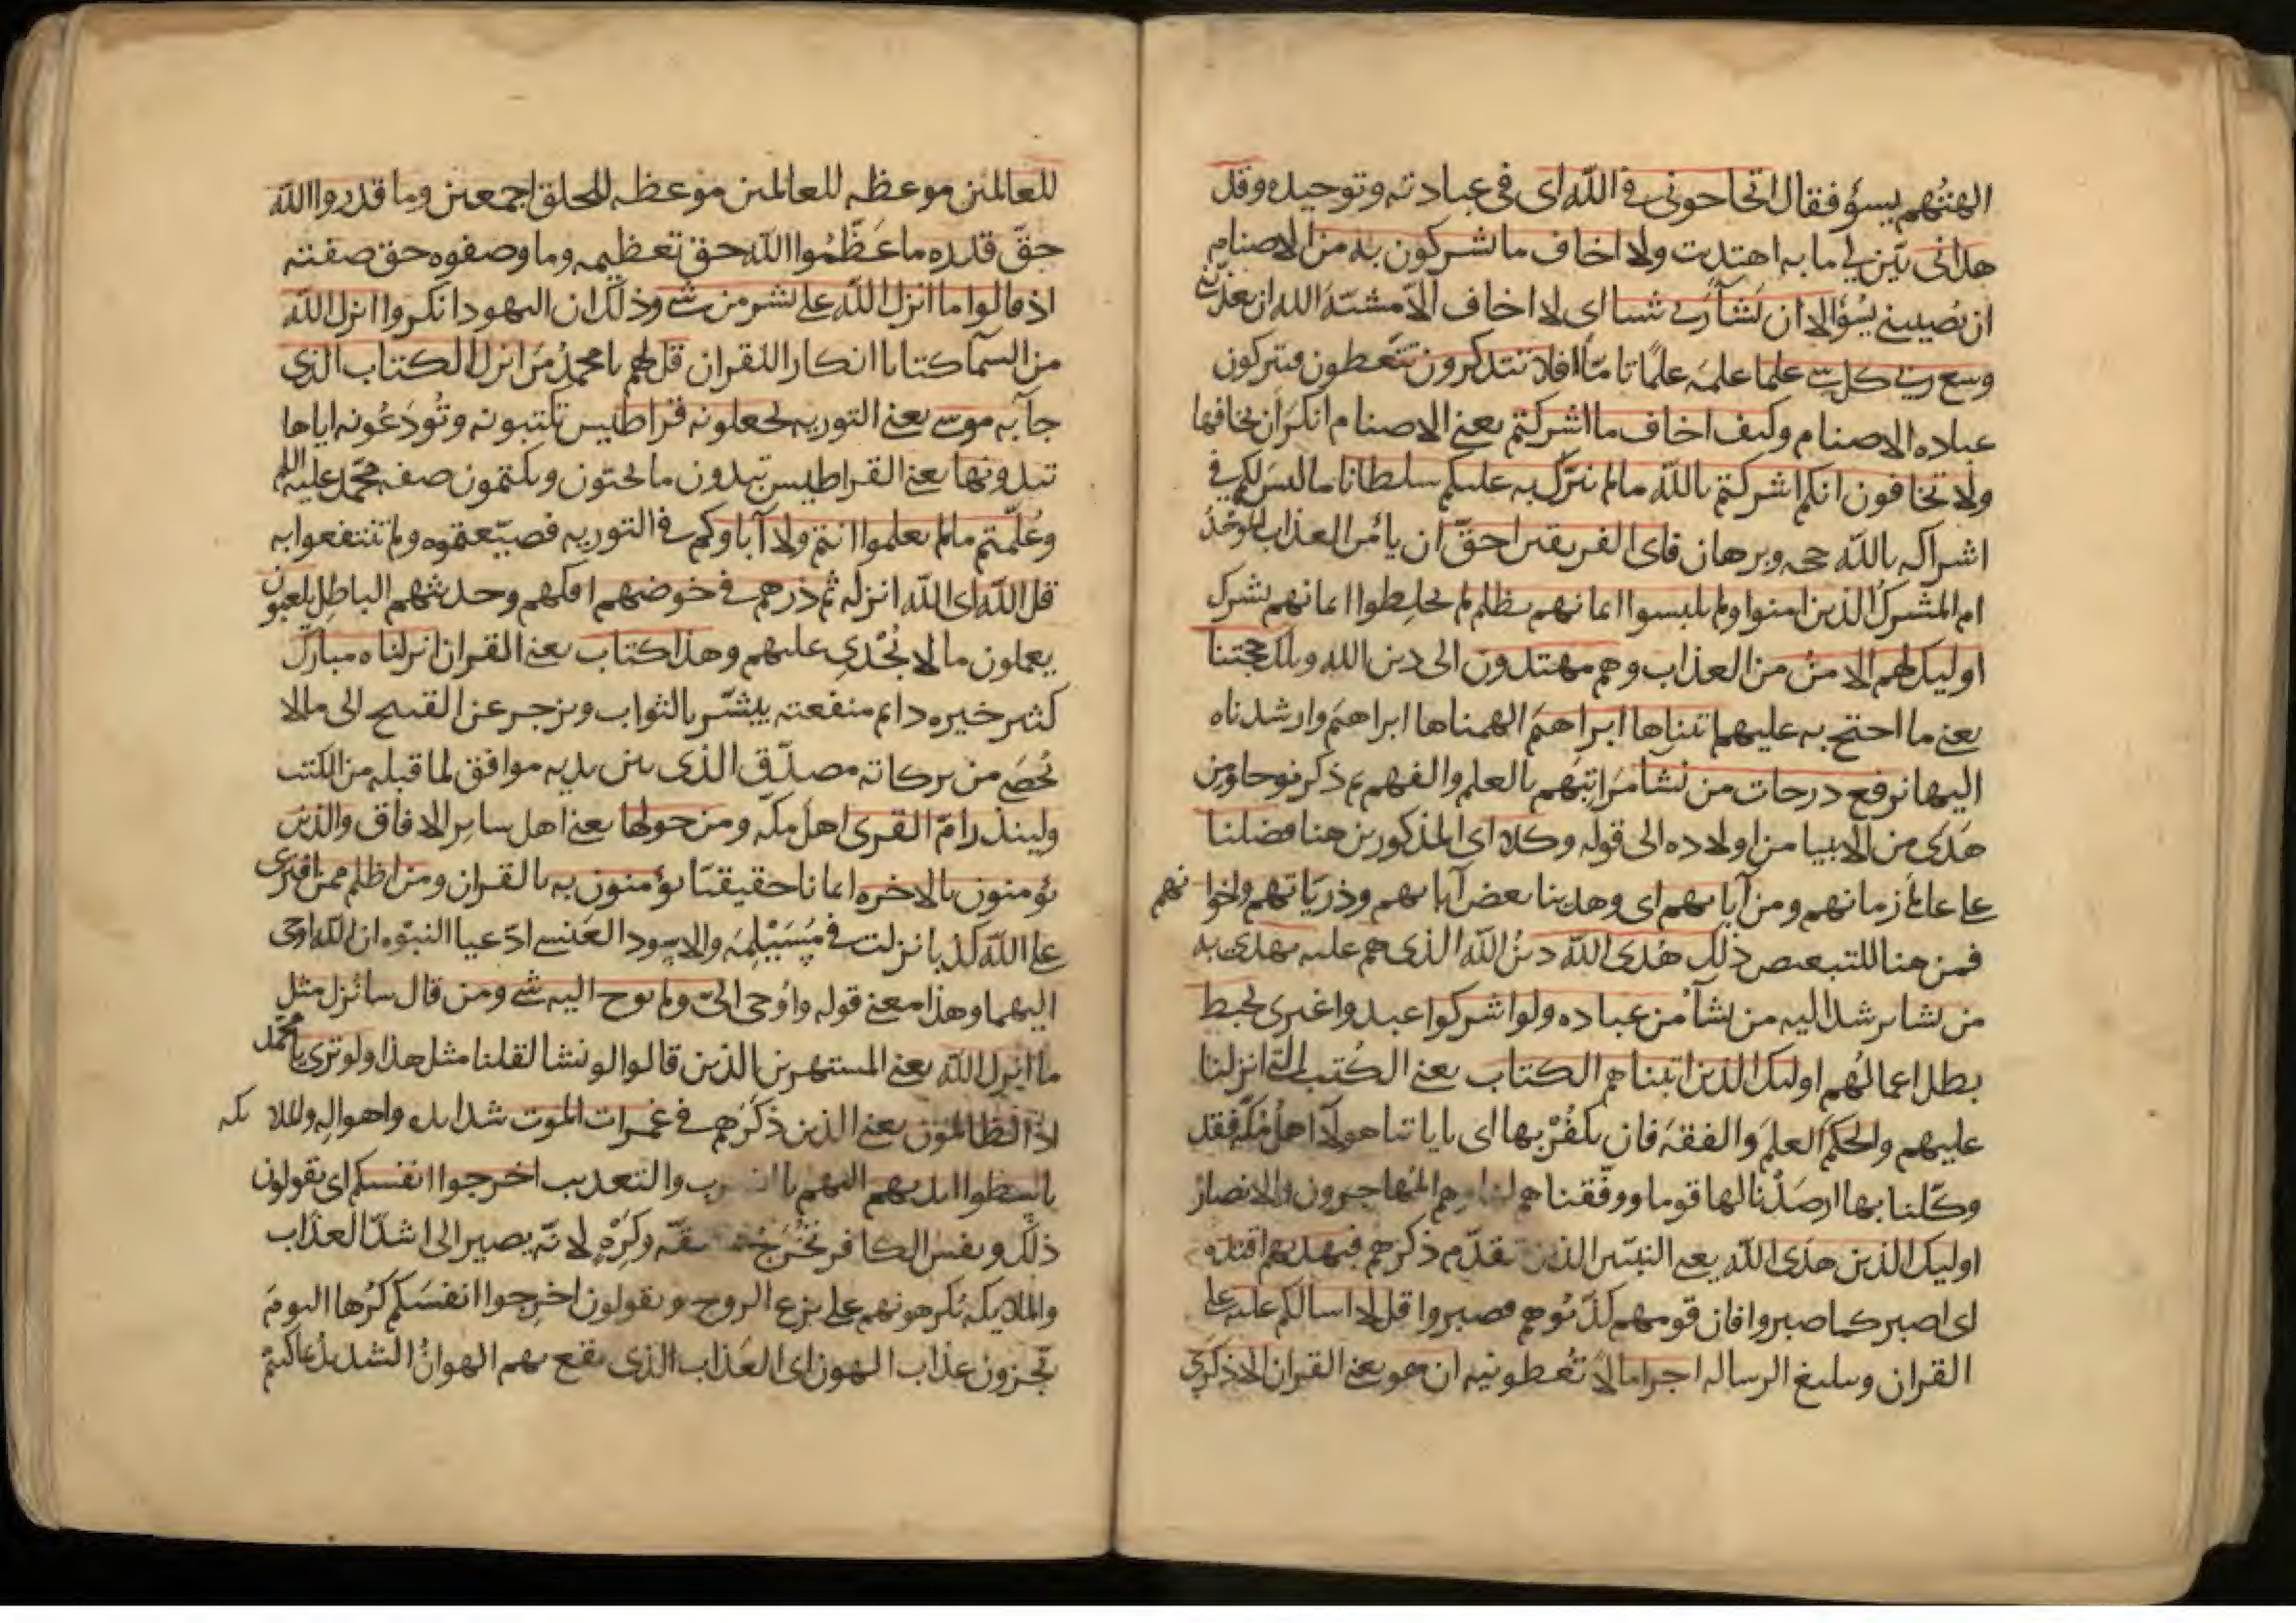 الهتهم بسؤ فقال اتحاجوني في الله اى فى عبادته وتوحيده وقد
هداني بين لي ما به اهتديت ولا اخاف ما تشركون به من الاصنام
ان تصيبني بسؤ الا ان يشأ ربي شيا اى لا اخاف الا مشية الله ان يعذبني
وسع ربي كل شي علما علمه علمًا تامّا افلا تتذكرون تتعظون فتتركون
عباده الاصنام وكيف اخاف ما اشركتم يعني الاصنام انكر ان يخافها
ولا تخافون انكم اشركتم بالله ما لم ينزل به عليكم سلطانا ما ليس لكم في
اشراكه بالله حجه وبرهان فاى الفريقين احقّ ان يأمن العذاب الموحد
ام المشرك الذين امنوا ولم يلبسوا ايمانهم بظلم لم يخلطوا ايمانهم بشرك
اوليك لهم الامن من العذاب وهم مهتدون الى دين الله وتلك حجتنا
يعني ما احتج به عليهم اتيناها ابراهيم الهمناها ابراهيم وارشدناه
اليها نرفع درجات من نشا مراتبهم بالعلم والفهم ثم ذكر نوحا ومن
هدى من الانبيا من اولاده الى قوله وكلا اى المذكورين هنا فضلنا
علي عالمي زمانهم ومن آبايهم اى وهدينا بعض آبايهم وذرياتهم واخوانهم
فمن هنا للتبعيض ذلك هدى الله دين الله الذى هم عليه يهدى به
من يشا يرشد اليه من يشآ من عباده ولو اشركوا عبدوا غيرى لحبط
بطل اعمالهم اوليك الذين اتيناهم الكتاب يعني الكتب التي انزلنا
عليهم والحكم العلم والفقه فان يكفر بها اى باياتنا هولآ اهل مكّه فقد
وكّلنا بها ارصدنا لها قوما ووفّقناهم لها وهم المهاجرون والانصار
اوليك الذين هدى الله يعني النبيين الذين تقدّم ذكرهم فبهديهم اقتده
اى اصبر كما صبروا فان قومهم كذّبوهم فصبروا قل لا اسالكم عليه علي
القران وتبليغ الرساله اجرا مالا تعطونيه ان هو يعني القران الا ذكرى
للعالمين موعظه للعالمين موعظه للخلق اجمعين وما قدروا الله
حقّ قدره ما عظّموا الله حق تعظيمه وما وصفوه حق صفته
اذ قالوا ما انزل الله علي بشر من شي وذلك ان اليهود انكروا انزل الله
من السمآ كتابا انكارا للقران قل لهم يا محمد من انزل الكتاب الذي
جآ به موسي يعني التوريه تجعلونه قراطيس تكتبونه وتودعونه اياها
تبدونها يعني القراطيس تبدون ما تحبون وتكتمون صفه محمّد عليه السلم
وعلّمتم ما لم تعلموا انتم ولا آباوكم في التوريه فضيّعتموه ولم تنتفعوا به
قل الله اى الله انزله ثم ذرهم في خوضهم افكهم وحديثهم الباطل يلعبون
يعملون ما لا يجدي عليهم وهذا كتاب يعني القران انزلناه مبارك
كثير خيره دايم منفعته يبشّر بالثواب ويزجر عن القبيح الى مالا
يحصي من بركاته مصدّق الذى بين يديه موافق لما قبله من الكتب
ولينذر امّ القرى اهل مكّه ومن حولها يعني اهل ساير الافاق والذين
يؤمنون بالاخره ايمانا حقيقيّا يؤمنون به بالقران ومن اظلم ممن افترى
علي الله كذبا نزلت في مسيلمه والاسود العنسي ادّعيا النبوّه ان الله اوحى
اليهما وهذا معني قوله واوحى الىّ ولم يوح اليه شي ومن قال سانزل مثل
ما انزل الله يعني المستهزين الذين قالوا لو نشا لقلنا مثل هذا ولو ترى يا محمّد
اذ الظالمون يعني الذين ذكرهم في غمرات الموت شدايده واهواله والملايكه
باسطوا ايديهم اليهم والتعذيب اخرجوا انفسكم اى يقولون
ذلك ونفس الكافر تخرج بمشقّه وكره لانّه يصير الى اشدّ العذاب
والملايكه يكرهونهم على نزع الروح ويقولون اخرجوا انفسكم كرها اليوم
تجزون عذاب الهون اى العذاب الذى يقع بهم الهوان الشديد بما كنتم